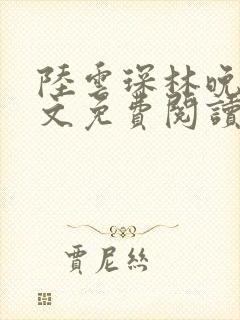 陸雲琛林晚
文免費閱讀
賈尼絲